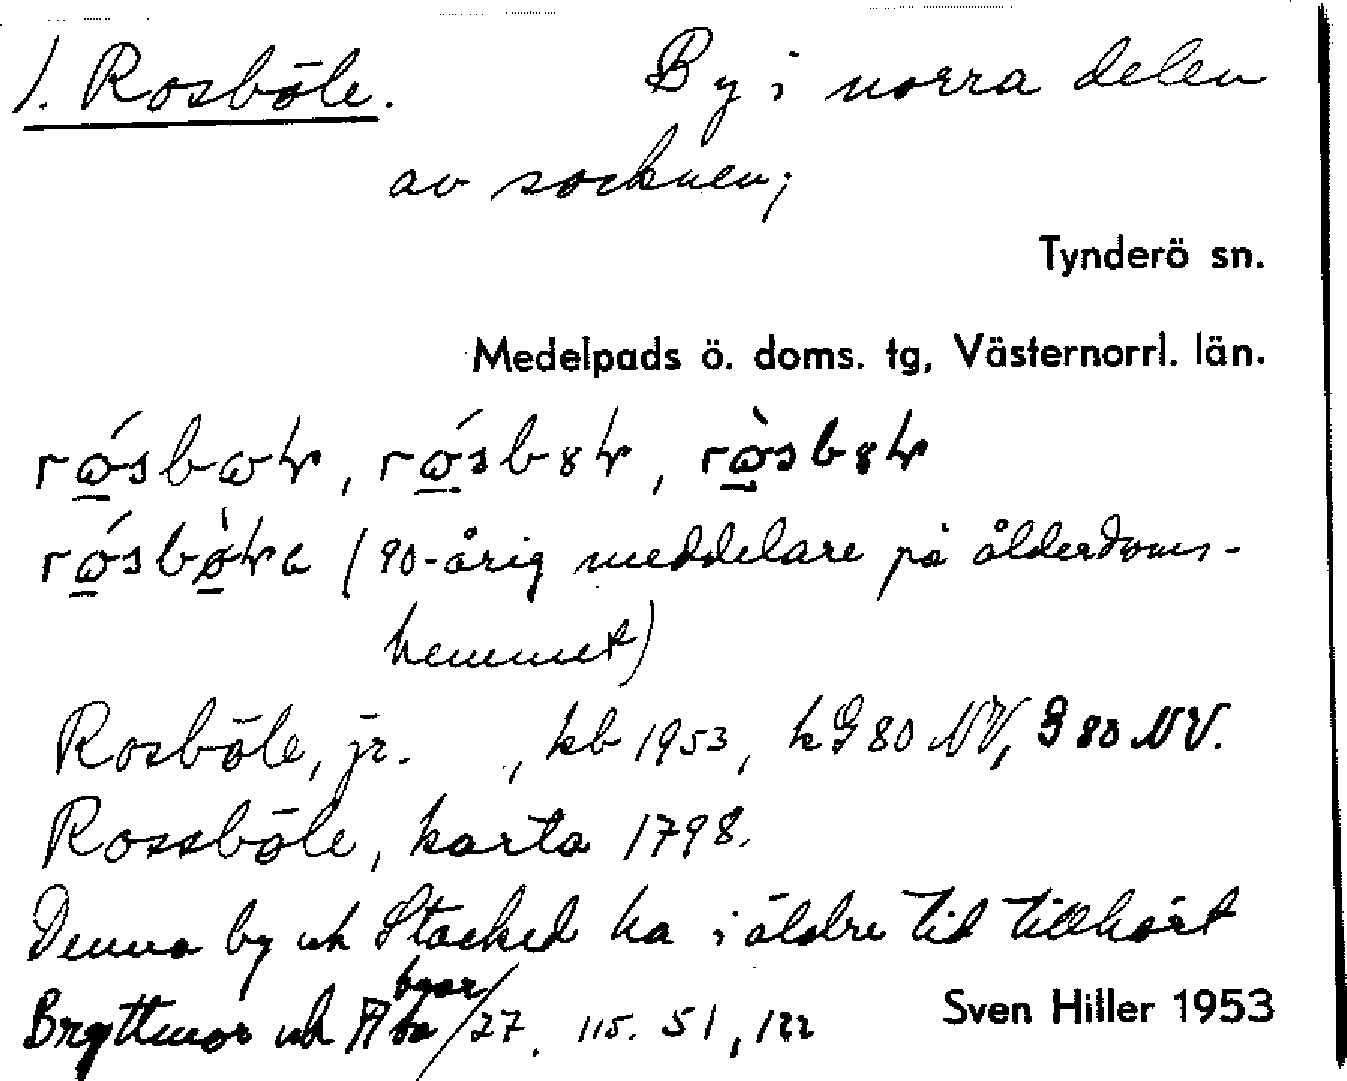 1. Rosböle. By i norra delen
av socknen;
Tynderö sn.
Medelpads ö. doms. tg, Västernorrl. län.
(90-årig meddelare på ålderdoms-
hemmet)
Rosböle, jr. , kb 1953, k G 80 NV, G 80 NV.
Rossböle, karta 1798.
Denna by och Stacked ha i äldre tid tillhört
byar
27. 115. 51, 122
Sven Hiller 1953